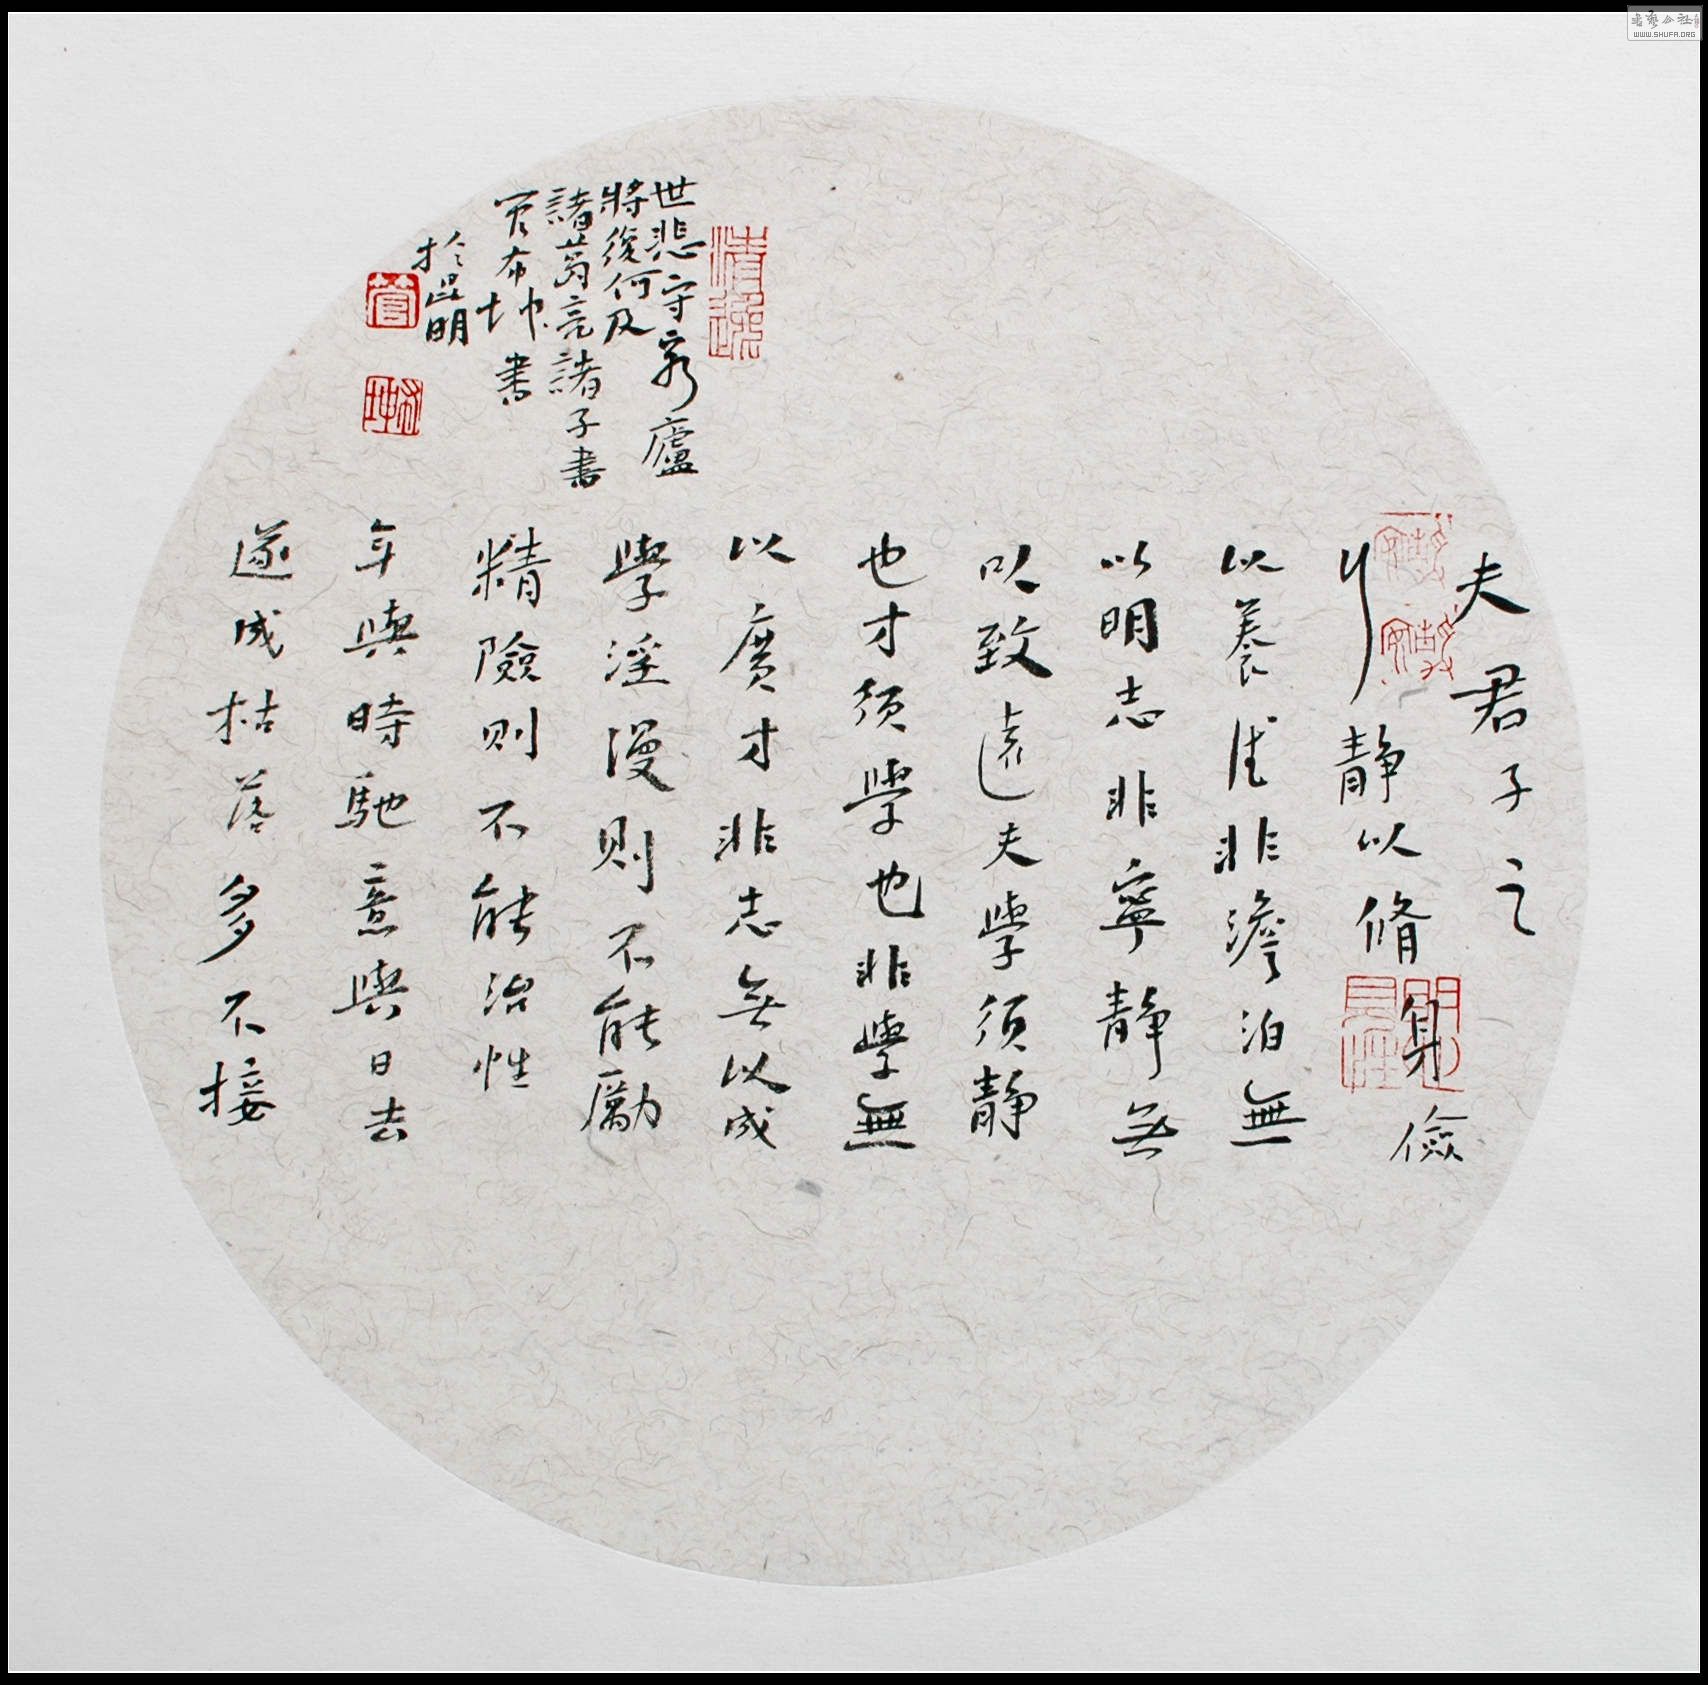 夫君子之
行静以脩身儉
以養德非澹泊無
以明志非寧静無
以致遠夫學須静
也才須學也非學無
以廣才非志無以成
學淫漫則不能勵
精險則不能治性
年與時馳意與日去
遂成枯落多不接
世悲守窮廬
將復何及
諸葛亮諸子書
坤書
於昆明
清逸
管
書藝公社
WWW.SHUFA.ORG